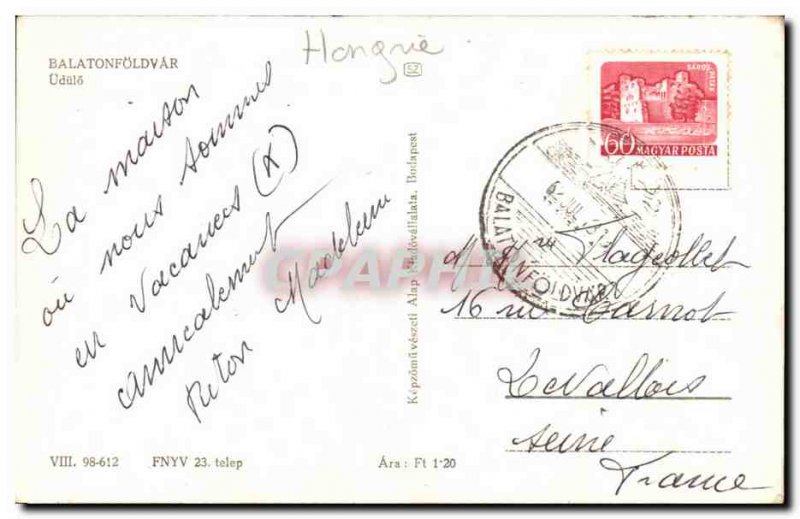 BALATONFÖLDVÁR
Üdülő
Hongrie
SZ
La maison
où nous sommes
en Vacances (x)
amicalement
Riton Madeleine
CPAPHIL
Képzőművészeti Alap Kiadóvállalata, Budapest
60 MAGYAR POSTA
BALATONFÖLDVÁR
16 rue Carnot
Levallois
Seine
France
VIII. 98-612 FNYV 23. telep Ára: Ft 1·20